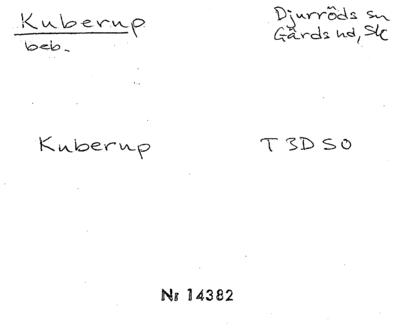 Kuberup
beb.
Djurröds sn
Gärds hd, Sk
Kuberup
T 3D SO
Nr 14382